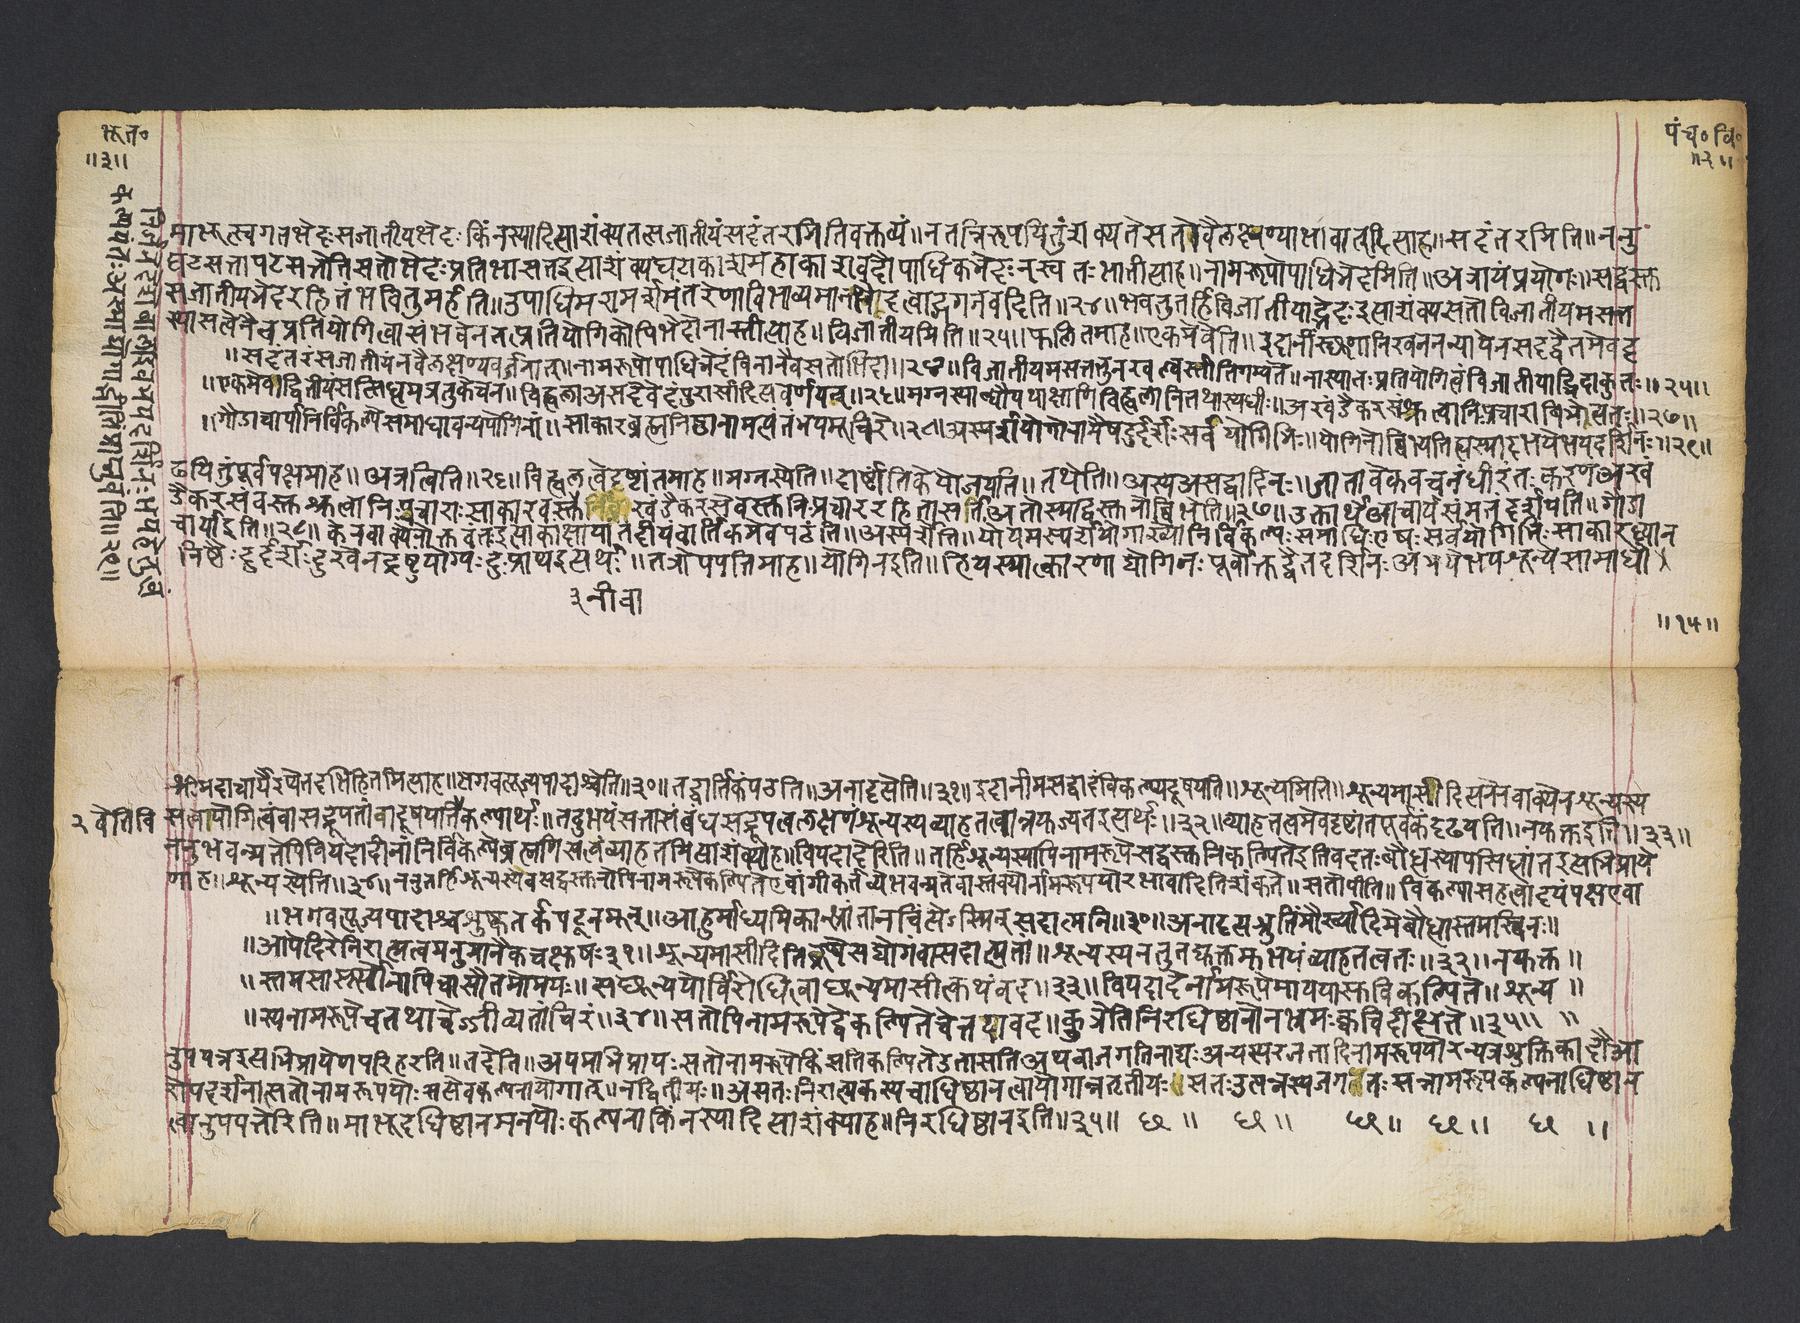 भूत०
॥३॥
पंच० वि०
॥२॥
माभूत्स्वगतभेदः सजातीयभेदः किं नस्यादित्याशंक्य तत्सजातीयं सदंतरमिति वक्तव्यं॥न तन्निरूपयितुं शक्यते सतो वैलक्षण्याभावादित्याह॥सदंतरमिति॥ननु
घटसत्तापटसत्तेति सतो भेदः प्रतिभासत इत्याशंक्य घटाकाशमहाकाशवदौपाधिकभेदः न स्वतः भातीत्याह॥नामरूपोपाधिभेदमिति॥अत्रायं प्रयोगः॥सद्वस्तु
सजातीयभेदरहितं भवितुमर्हति॥उपाधिपरामर्शमंतरेणाविभाव्यमानभेदत्वाद्गगनवदिति॥२४॥भवतु तर्हि विजातीयाद्भेदः इत्याशंक्य सतो विजातीयमसत्त
स्यासत्वेनैव प्रतियोगित्वासंभवेन तत्प्रतियोगिकोपि भेदो नास्तीत्याह॥विजातीयमिति॥२५॥फलितमाह॥एकमेवेति॥इदानीं स्थूणानिखननन्यायेन सदद्वैतमेव दृ
॥सदंतरं सजातीयं न वैलक्षण्यवर्जनात्॥नामरूपोपाधिभेदं विना नैव सतो भिदा॥२४॥विजातीयमसत्तत्तु न खल्वस्तीति गम्यते॥नास्यातः प्रतियोगित्वं विजातीयाद्भिदा कुतः॥२५॥
॥एकमेवाद्वितीयं सत्सिद्धमत्र तु केचन॥विह्वला असदेवेदं पुरासीदित्यवर्णयन्॥२६॥मग्नस्याब्धौ यथाक्षाणि विह्वलानि तथास्य धीः॥अखंडैकरसं श्रुत्वा निःप्रचारा बिभेत्यतः॥२७॥
॥गौडाचार्या निर्विकल्पे समाधावन्ययोगिनां॥साकारब्रह्मनिष्ठानामत्यंतं भयमूचिरे॥२८॥अस्पर्शयोगोनामैष दुर्दर्शः सर्वयोगिभिः॥योगिनो बिभ्यति ह्यस्मादभये भयदर्शिनः॥२९॥
ढयितुं पूर्वपक्षमाह॥अत्रत्विति॥२६॥विह्वलत्वे दृष्टांतमाह॥मग्नस्येति॥दार्ष्टांतिके योजयति॥तथेति॥अस्य असद्वादिनः॥जातावेकवचनं धीरंतःकरणं अखं
डैकरसं वस्तु श्रुत्वा निःप्रचारा साकारवस्तु खंडैकरसे वस्तुनि प्रचाररहिता सती अतोस्माद्वस्तुनो बिभेति॥२७॥उक्तार्थे आचार्यसंमतं दर्शयति॥गौडा
चार्या इति॥२८॥केन वाक्येनोक्तवंत इत्याकांक्षायां तदीयवार्तिकमेव पठति॥अस्पर्शेति॥योयमस्पर्शयोगाख्यो निर्विकल्पः समाधिः एषः सर्वयोगिभिः साकारध्यान
निष्ठैः दुर्दर्शः दुःखेन द्रष्टुं योग्यः दुःप्राप्य इत्यर्थः॥तत्रोपपत्तिमाह॥योगिन इति॥हि यस्मात्कारणाद्योगिनः पूर्वोक्तद्वैतदर्शिनः अभये भयशून्ये समाधौ
निर्जने देशे बाला इव भयदर्शिनः भयहेतुत्वं
कल्पयंतः अस्माद्योगाद्भीतिं प्राप्नुवंति॥२९॥
३ नीवा
॥१५॥
श्रीमदाचार्यैरप्येतदभिहितमित्याह॥भगवत्पूज्यपादाश्चेति॥३०॥तद्वार्तिकं पठति॥अनादृत्येति॥३१॥इदानीमसद्वादं विकल्प्य दूषयति॥शून्यमिति॥शून्यमासीदित्यनेन वाक्येन शून्यस्य
२ वेति वि
सत्तायोगित्वं वा सद्रूपतां वा दूषयति विकल्पार्थः॥तदुभयं सत्तासंबंधसद्रूपत्वलक्षणं शून्यस्य व्याहतत्वान्न युज्यत इत्यर्थः॥३२॥व्याहतत्वमेव दृष्टांतपूर्वकं दृढयति॥न युक्त इति॥३३॥
ननु भवन्मतेपि वियदादीनां निर्विकल्पे ब्रह्मणि सत्वं व्याहतमित्याशंक्याह॥वियदादेरिति॥तर्हि शून्यस्यापि नामरूपे सद्वस्तुनि कल्पिते इति वदतः बौद्धस्यापसिद्धांत इत्यभिप्राये
णाह॥शून्यस्येति॥३४॥ननु तर्हि शून्यस्येव सद्वस्तुनोपि नामरूपे कल्पिते एवांगीकर्तव्ये भवन्मते वास्तवयोर्नामरूपयोरभावादिति शंकते॥सतोपीति॥विकल्पासहत्वादयं पक्ष एवा
॥भगवत्पूज्यपादाश्च शुष्कतर्कपटूनमून्॥आहुर्माध्यमिकान्भ्रांतानचिंत्येऽस्मिन् सदात्मनि॥३०॥अनादृत्य श्रुतिं मौर्ख्यादिमे बौद्धास्तमस्विनः॥
॥आपेदिरे निरात्मत्वमनुमानैकचक्षुषः ३१॥शून्यमासीदिति ब्रूषे सद्योगं वा सदात्मतां॥शून्यस्य न तु तद्युक्तमुभयं व्याहतत्वतः॥३२॥न युक्त॥
॥स्तमसा सूर्यो नापि चासौ तमोमयः॥सच्छून्ययोर्विरोधित्वाच्छून्यमासीत्कथं वद॥३३॥वियदादेर्नामरूपे मायया स्तु विकल्पिते॥शून्य॥
॥स्य नामरूपे च तथा चेज्जीव्यतां चिरं॥३४॥सतोपि नामरूपे द्वे कल्पिते चेत्तदा वद॥कुत्रेति निरधिष्ठानो न भ्रमः क्वचिदीक्ष्यते॥३५॥॥
नुपपन्न इत्यभिप्रायेण परिहरति॥तदेति॥अयमभिप्रायः सतो नामरूपे किं सति कल्पिते उतासति अथवा जगति नाद्यः अन्यस्य रजतादि नामरूपयोरन्यत्र शुक्तिकादौ आ
रोपदर्शनात्सतो नामरूपयोः सत्येव कल्पनायोगात्॥न द्वितीयः॥असतः निरात्मकस्य चाधिष्ठानत्वायोगान्न तृतीयः सतः उत्पन्नस्य जगतः सन्नामरूपकल्पनाधिष्ठान
त्वानुपपत्तेरिति॥माभूदधिष्ठानमनयोः कल्पना किं नस्यादित्याशंक्याह॥निरधिष्ठान इति॥३५॥ छ॥ छ॥ छ॥ छ॥ छ॥